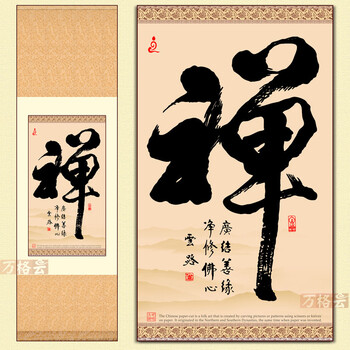 禅
廣结善缘
净修佛心
雲路
万格云
禅
廣结善缘
净修佛心
雲路
The Chinese paper-cut is a folk art that is created by carving pictures or patterns using scissors or knives
on paper. It originated in the Northern and Southern Dynasties, the same time when paper was invented.
万格云